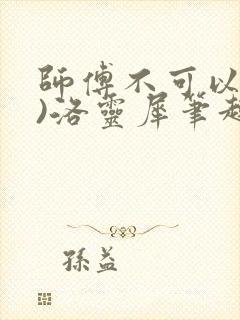 師傅不可以
)洛靈犀筆趣
孫益